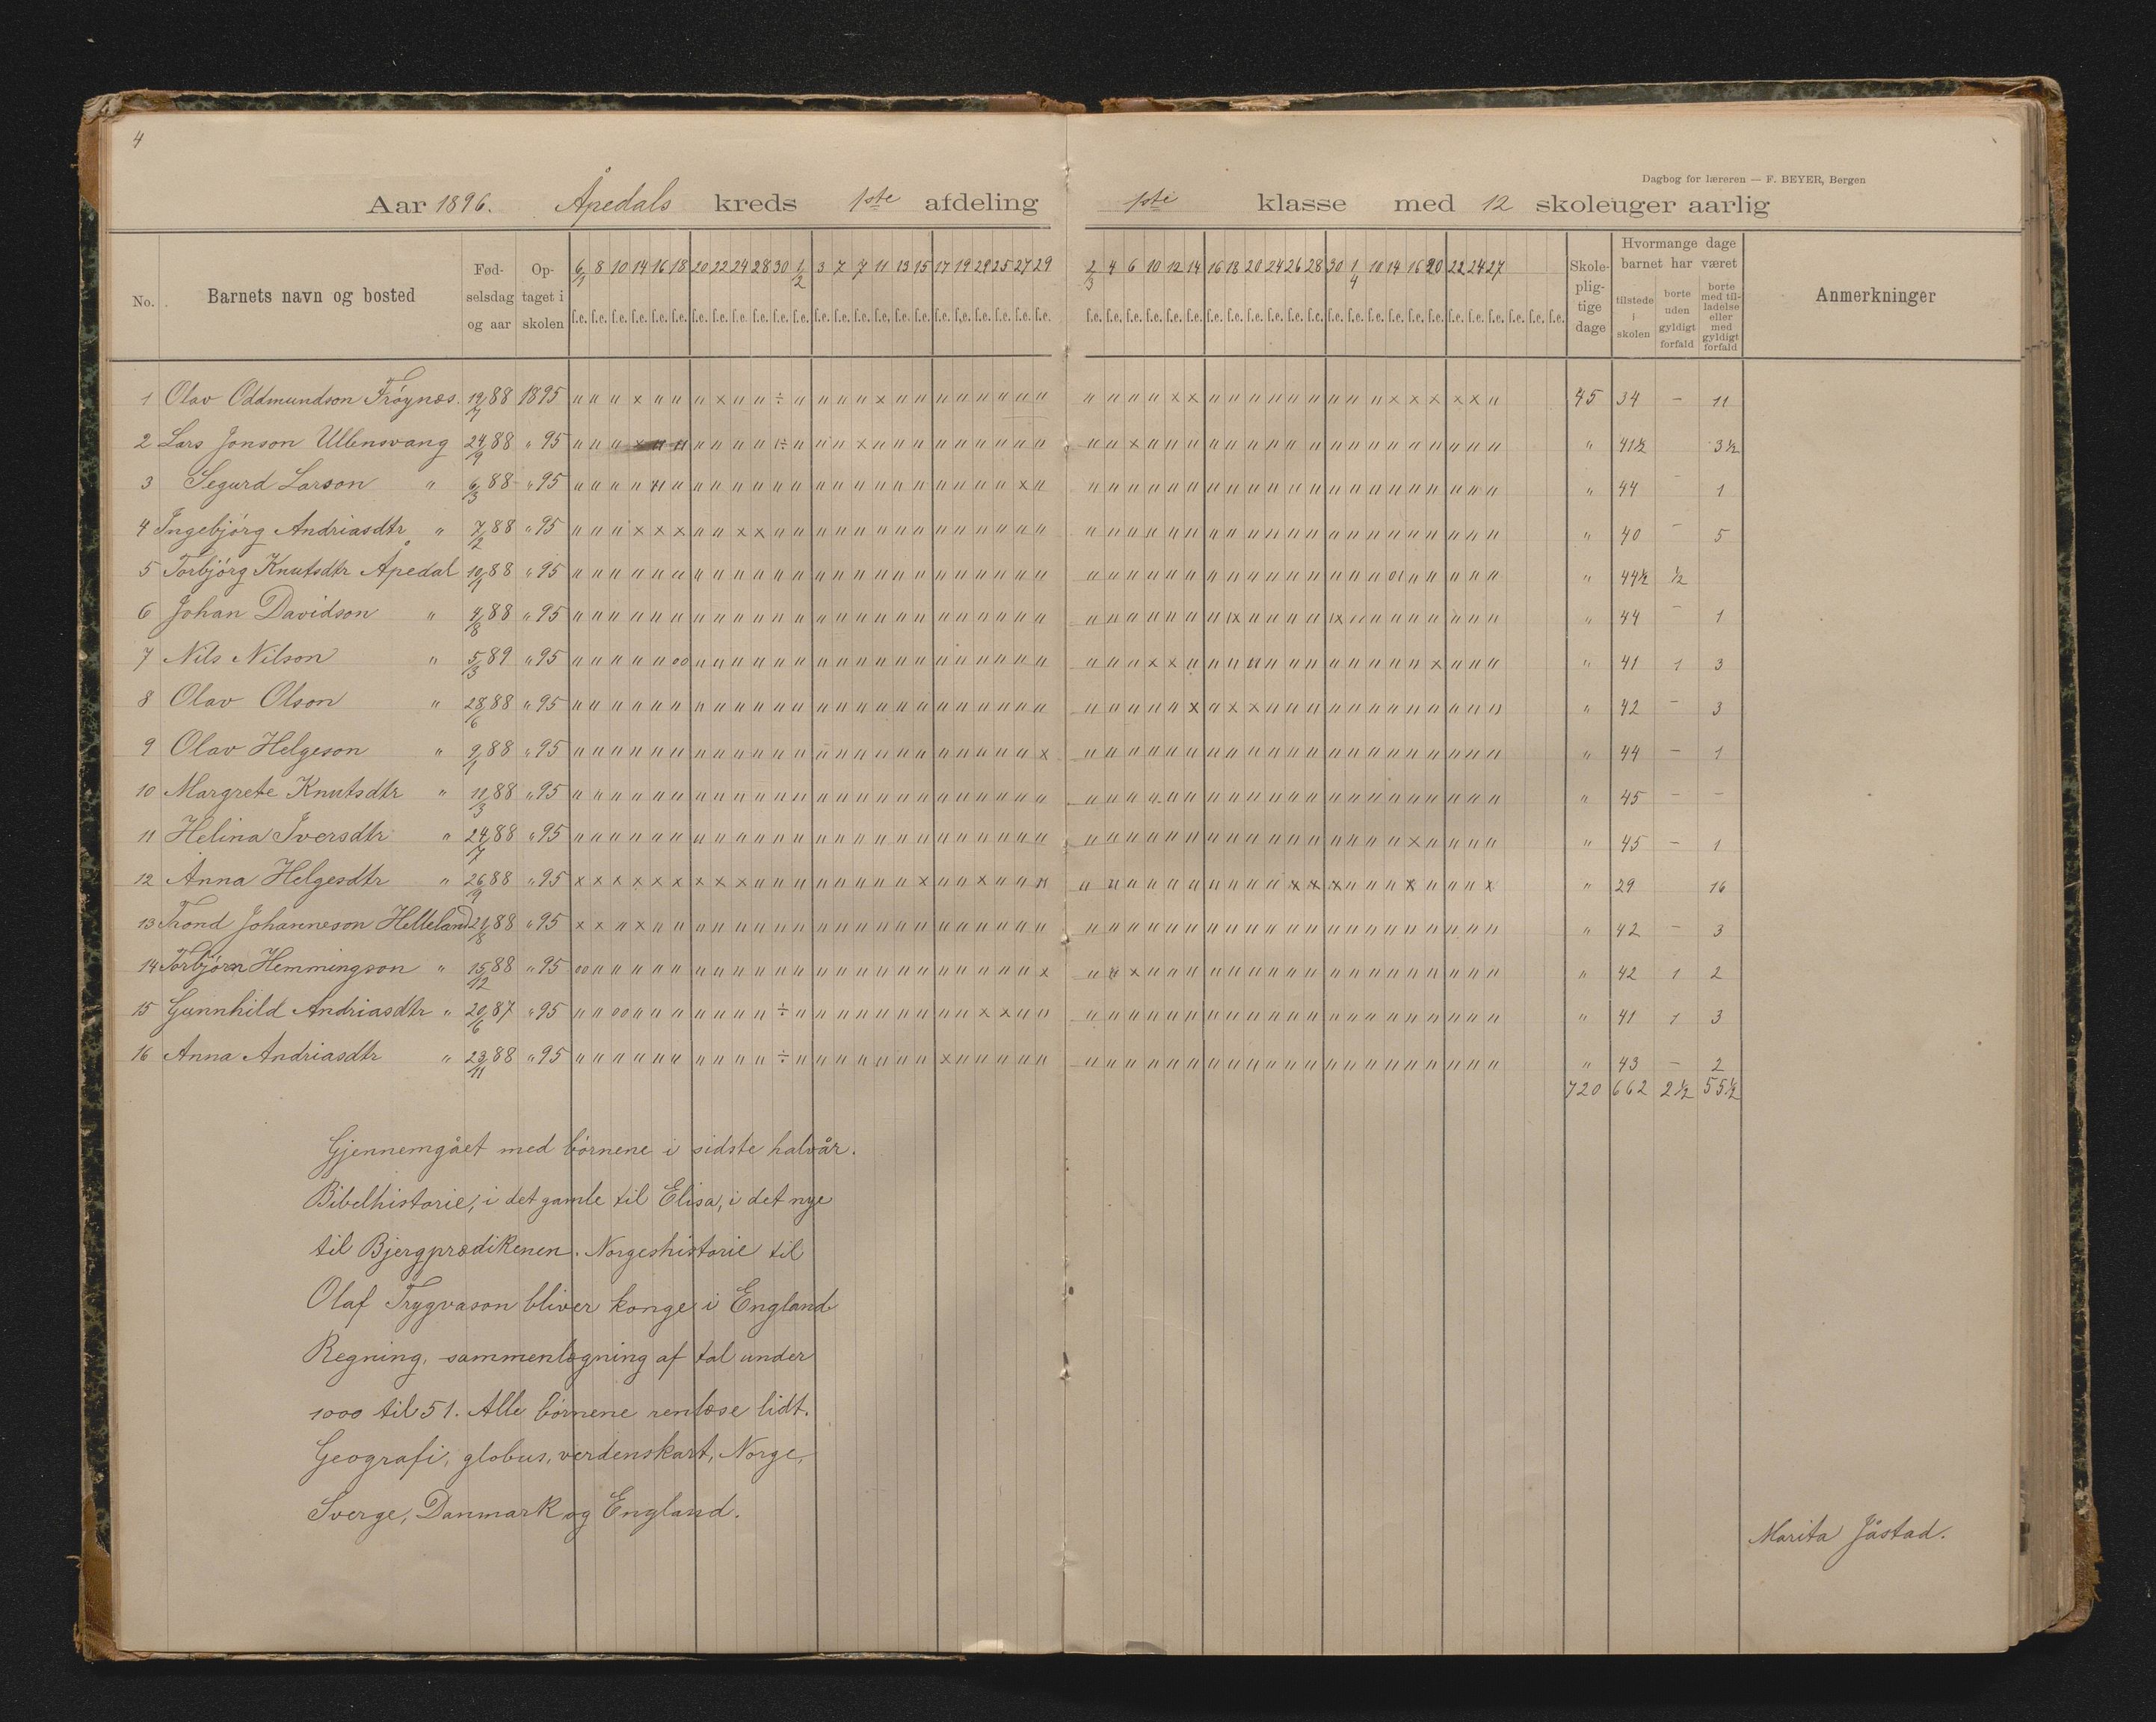 4
Dagbog for læreren — F. BEYER, Bergen
Aar 1896. Åpedals kreds 1ste afdeling 1ste klasse med 12 skoleuger aarlig
No. Barnets navn og bosted Fødselsdag og aar Optaget i skolen 6/1 8 10 14 16 18 20 22 24 28 30 1/2 3 7 7 11 13 15 17 19 21 25 27 29 2/3 4 6 10 12 14 16 18 20 24 26 28 30 1/4 10 14 16 20 22 24 27 Skolepligtige dage Hvormange dage barnet har været tilstede i skolen borte uden gyldigt forfald borte med tilladelse eller med gyldigt forfald Anmerkninger
1 Olav Oddmundson Frøynæs. 19/7 88 1895 45 34 – 11
2 Lars Jonson Ullensvang 24/9 88 " 95 " 41½ 3½
3 Segurd Larson " 6/3 88 " 95 " 44 – 1
4 Ingebjørg Andriasdtr " 7/2 88 " 95 " 40 – 5
5 Torbjørg Knutsdtr Åpedal 10/9 88 " 95 " 44½ ½
6 Johan Davidson " 4/8 88 " 95 " 44 – 1
7 Nils Nilson " 5/3 89 " 95 " 41 1 3
8 Olav Olson " 28/6 88 " 95 " 42 – 3
9 Olav Helgeson " 9/1 88 " 95 " 44 – 1
10 Margrete Knutsdtr " 11/3 88 " 95 " 45 – –
11 Helina Iversdtr " 24/7 88 " 95 " 45 – 1
12 Anna Helgesdtr " 26/9 88 " 95 " 29 16
13 Trond Johanneson Helleland 21/8 88 " 95 " 42 – 3
14 Torbjørn Hemmingson " 15/12 88 " 95 " 42 1 2
15 Gunnhild Andriasdtr " 20/6 87 " 95 " 41 1 3
16 Anna Andriasdtr " 23/11 88 " 95 " 43 – 2
720 662 2½ 55½
Gjennemgået med børnene i sidste halvår.
Bibelhistorie, i det gamle til Elisa, i det nye
til Bjergprædikenen. Norgeshistorie til
Olaf Trygvason bliver konge i England
Regning, sammenlægning af tal under
1000 til 51. Alle børnene renlæse lidt.
Geografi, globus, verdenskart, Norge,
Sverge, Danmark og England.
Marita Jåstad.